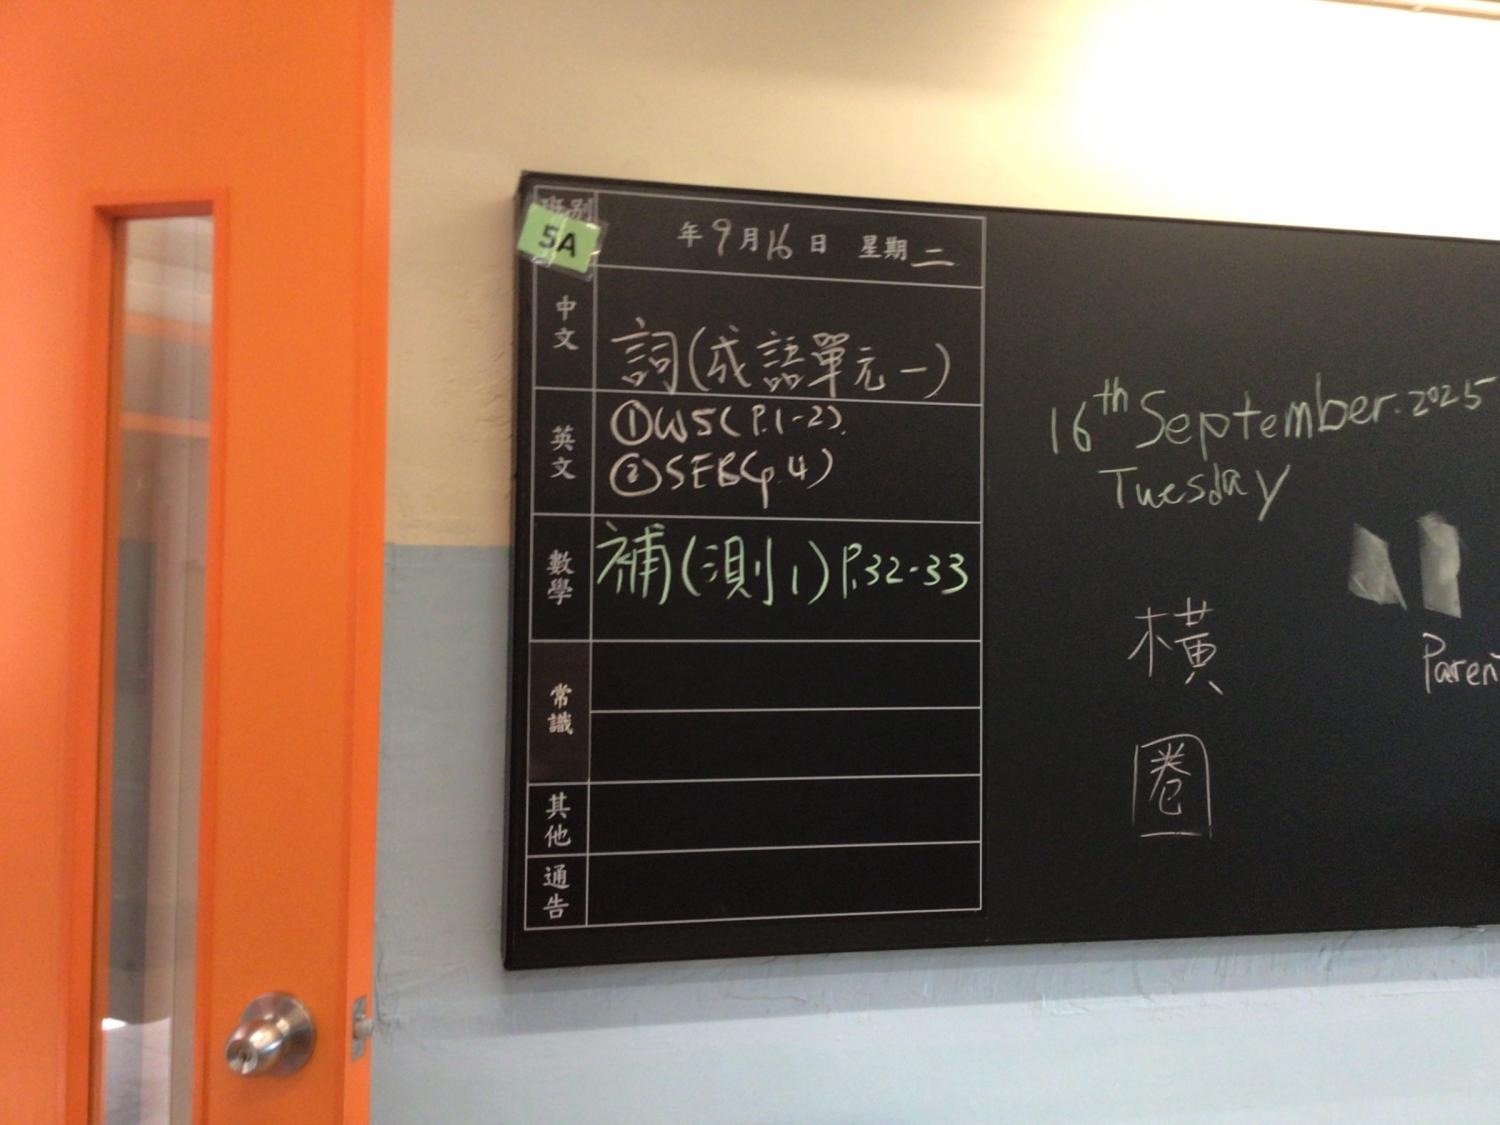 班別
5A
年9月16日 星期二
中文
詞(成語單元一)
英文
①WS(P.1-2).
②SEB(p.4)
數學
補(測1)P.32-33
常識
其他
通告
16th September.2025
Tuesday
橫
圈
Paren